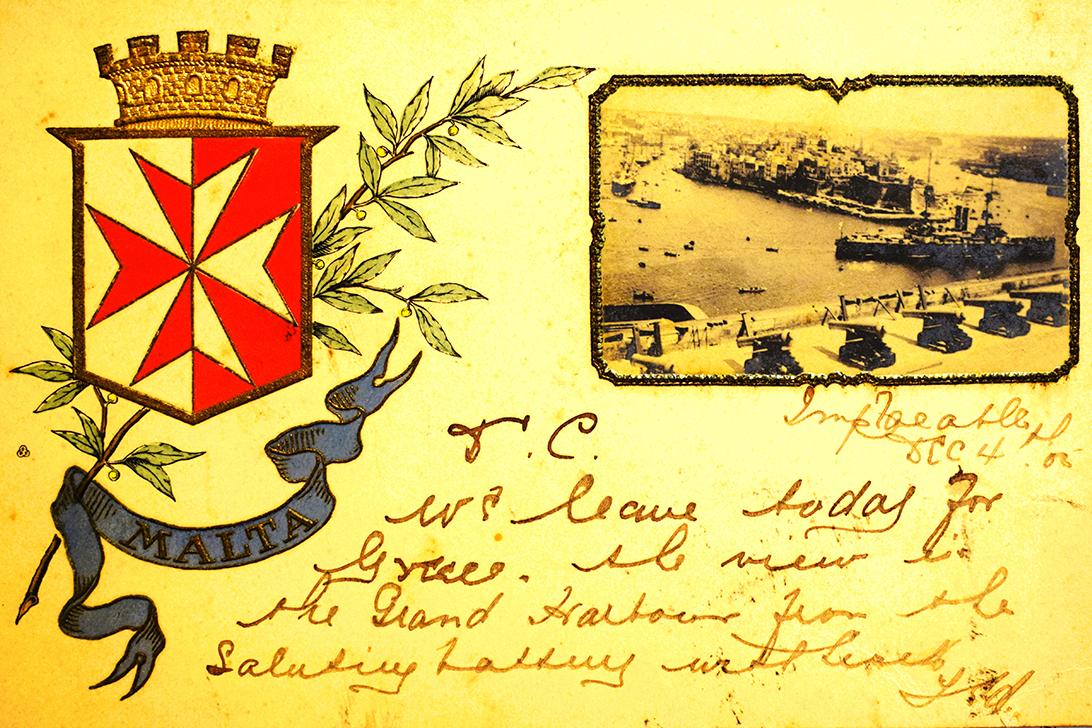 MALTA
Implacable
Dec 4th 05
D. C.
We leave today for
Greece. the view is
the Grand Harbour from the
Saluting battery